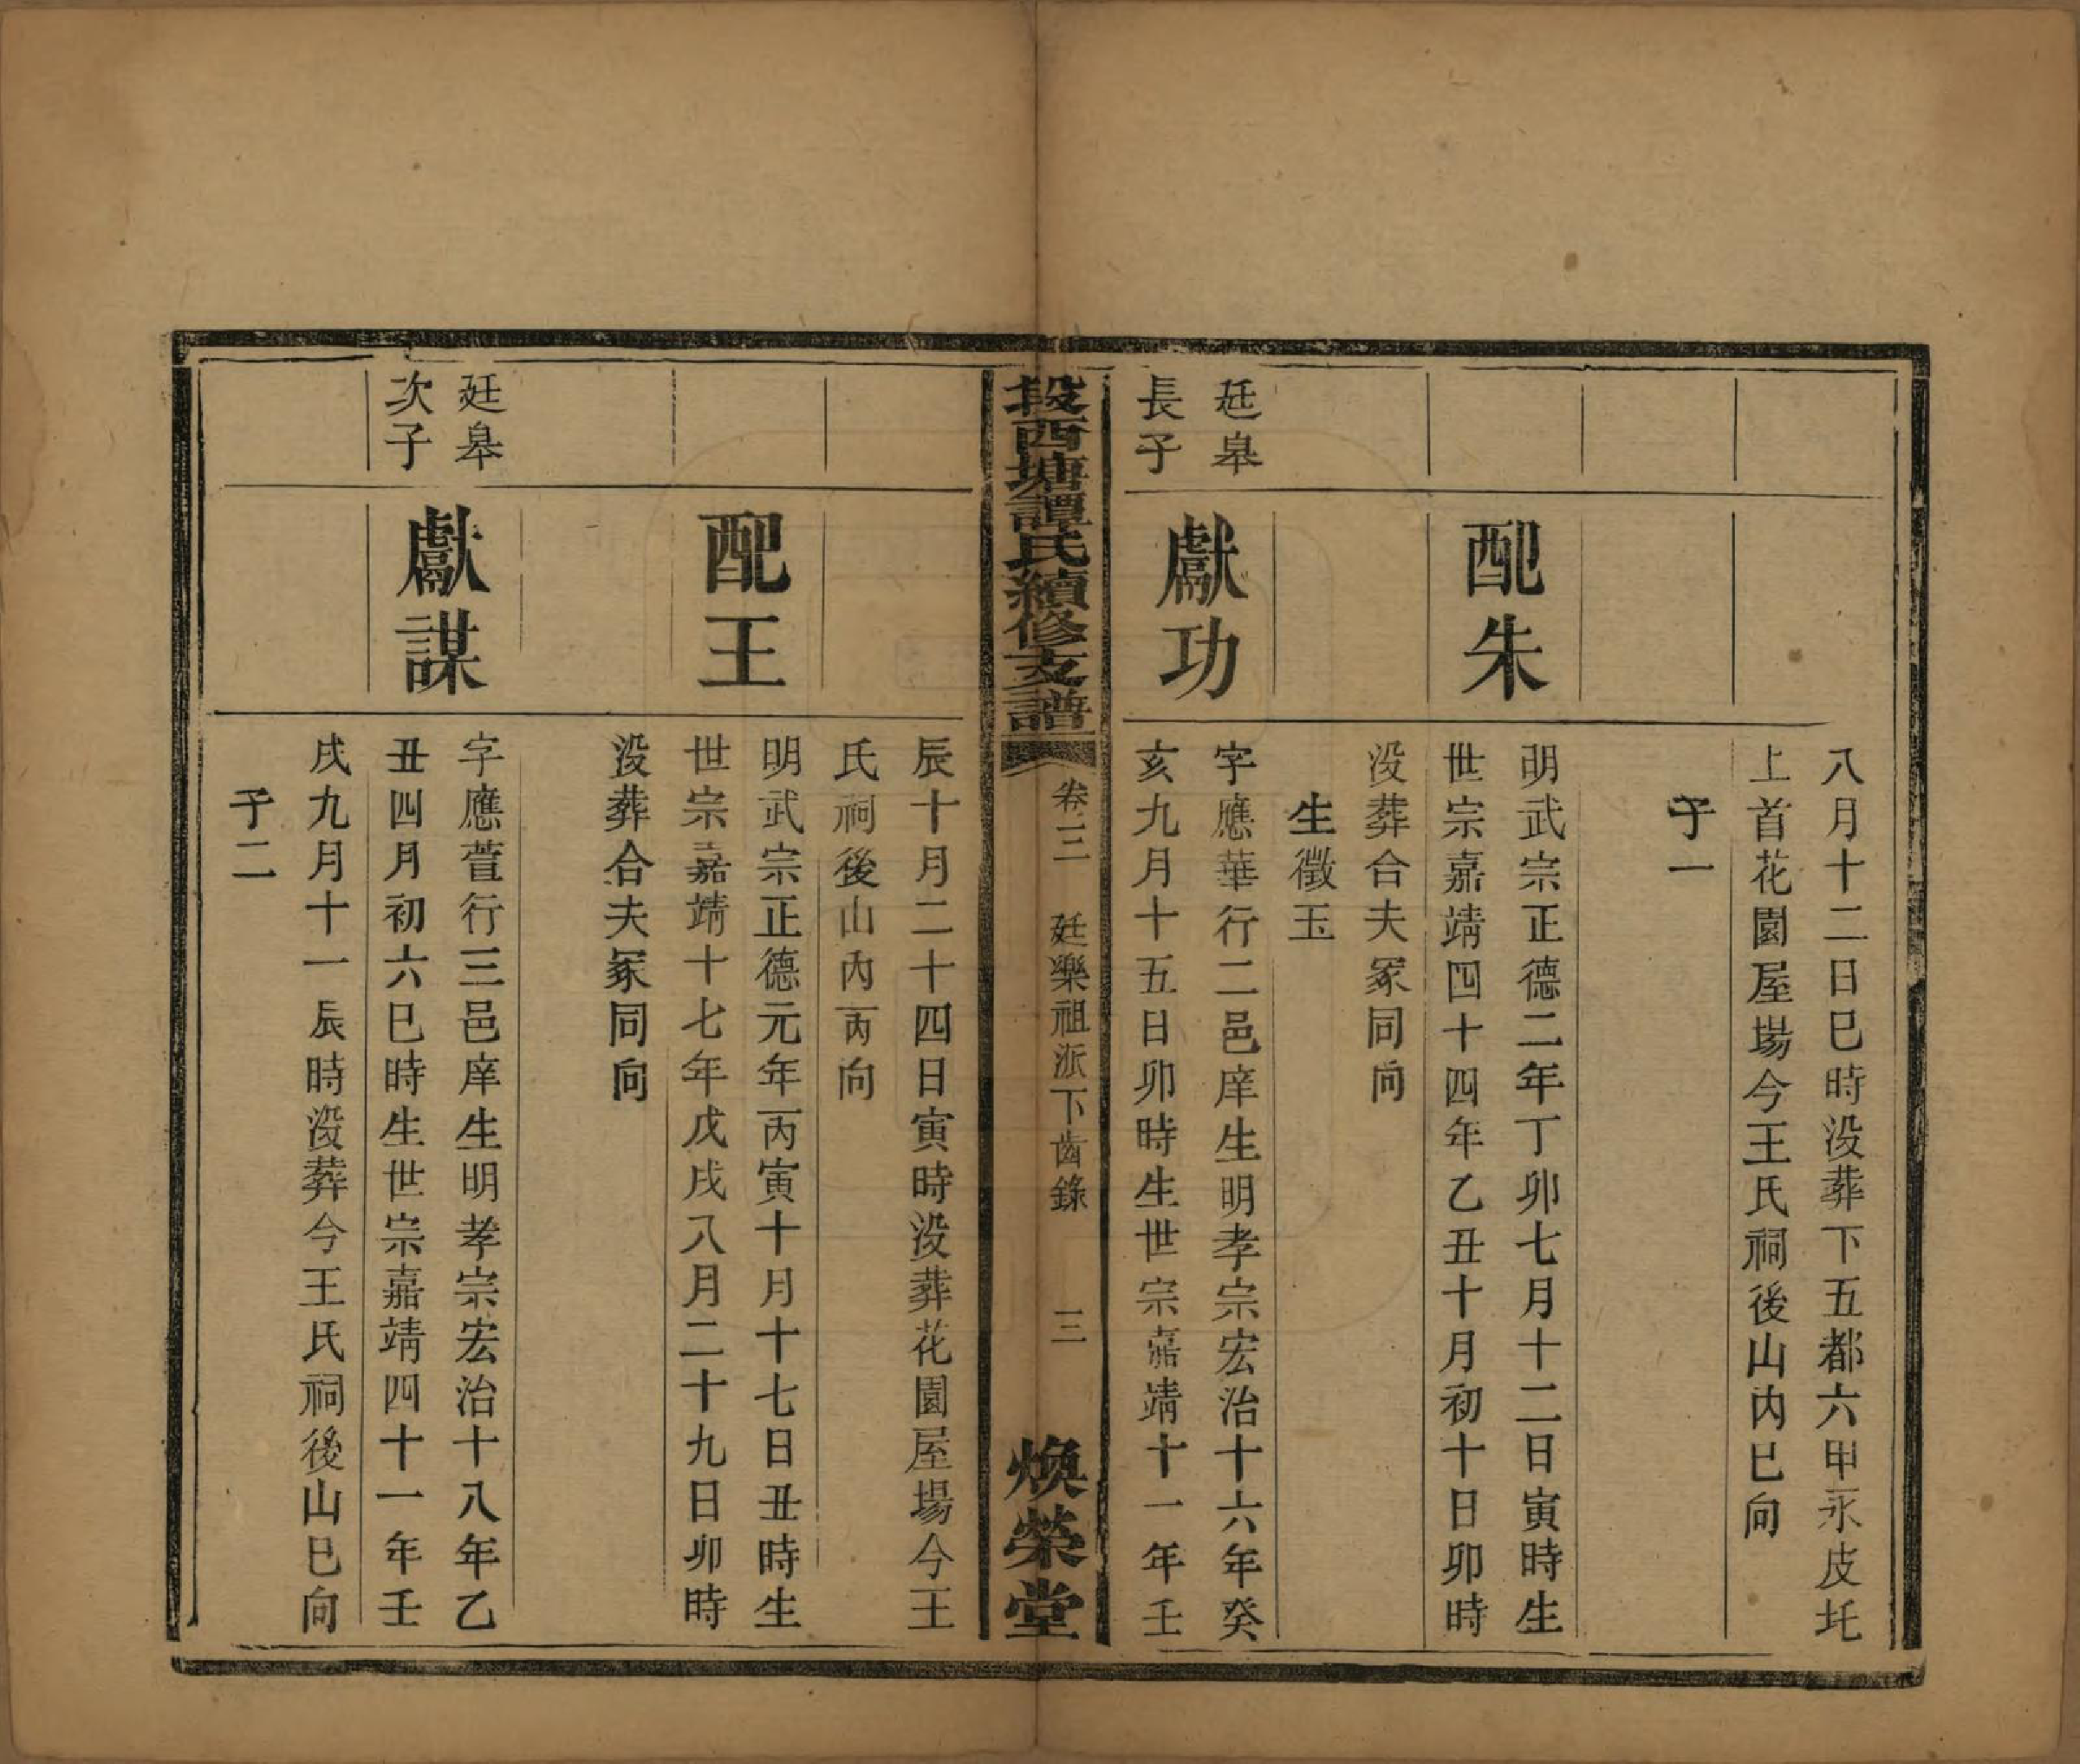 八月十二日巳時没葬下五都六甲永皮圫
上首花園屋場今王氏祠後山內巳向
子一
配朱
明武宗正德二年丁卯七月十二日寅時生
世宗嘉靖四十四年乙丑十月初十日卯時
没葬合夫冢同向
生徵玉
廷皋
長子
獻功
字應華行二邑庠生明孝宗宏治十六年癸
亥九月十五日卯時生世宗嘉靖十一年壬
段西塘譚氏續修支譜
卷三
廷樂祖派下齒錄
三
煥榮堂
辰十月二十四日寅時没葬花園屋場今王
氏祠後山內丙向
配王
明武宗正德元年丙寅十月十七日丑時生
世宗嘉靖十七年戊戌八月二十九日卯時
没葬合夫冢同向
廷皋
次子
獻謀
字應萱行三邑庠生明孝宗宏治十八年乙
丑四月初六巳時生世宗嘉靖四十一年壬
戌九月十一辰時没葬今王氏祠後山巳向
子二